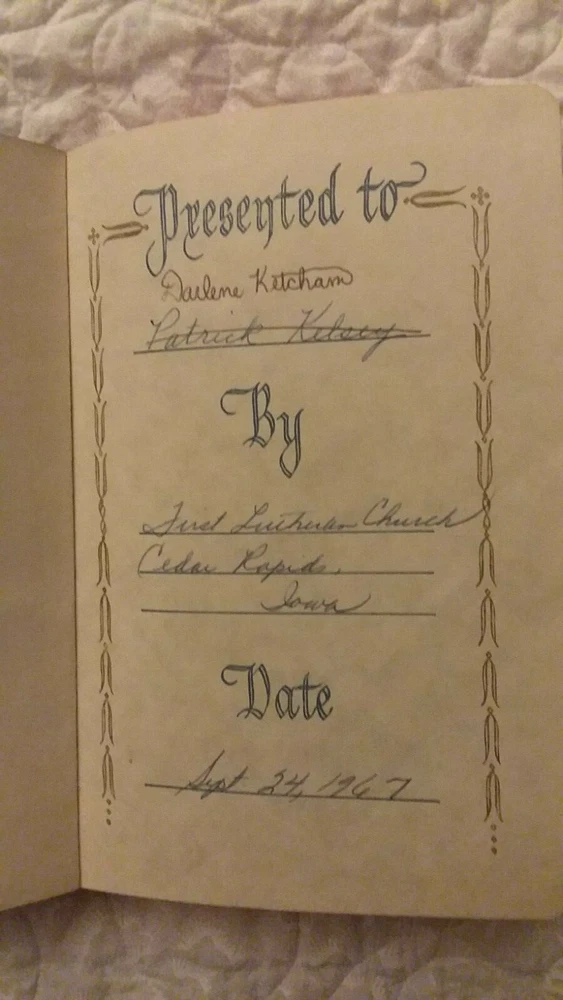 Presented to
Darlene Ketcham
Patrick Kelsey
By
First Lutheran Church
Cedar Rapids,
Iowa
Date
Sept 24, 1967